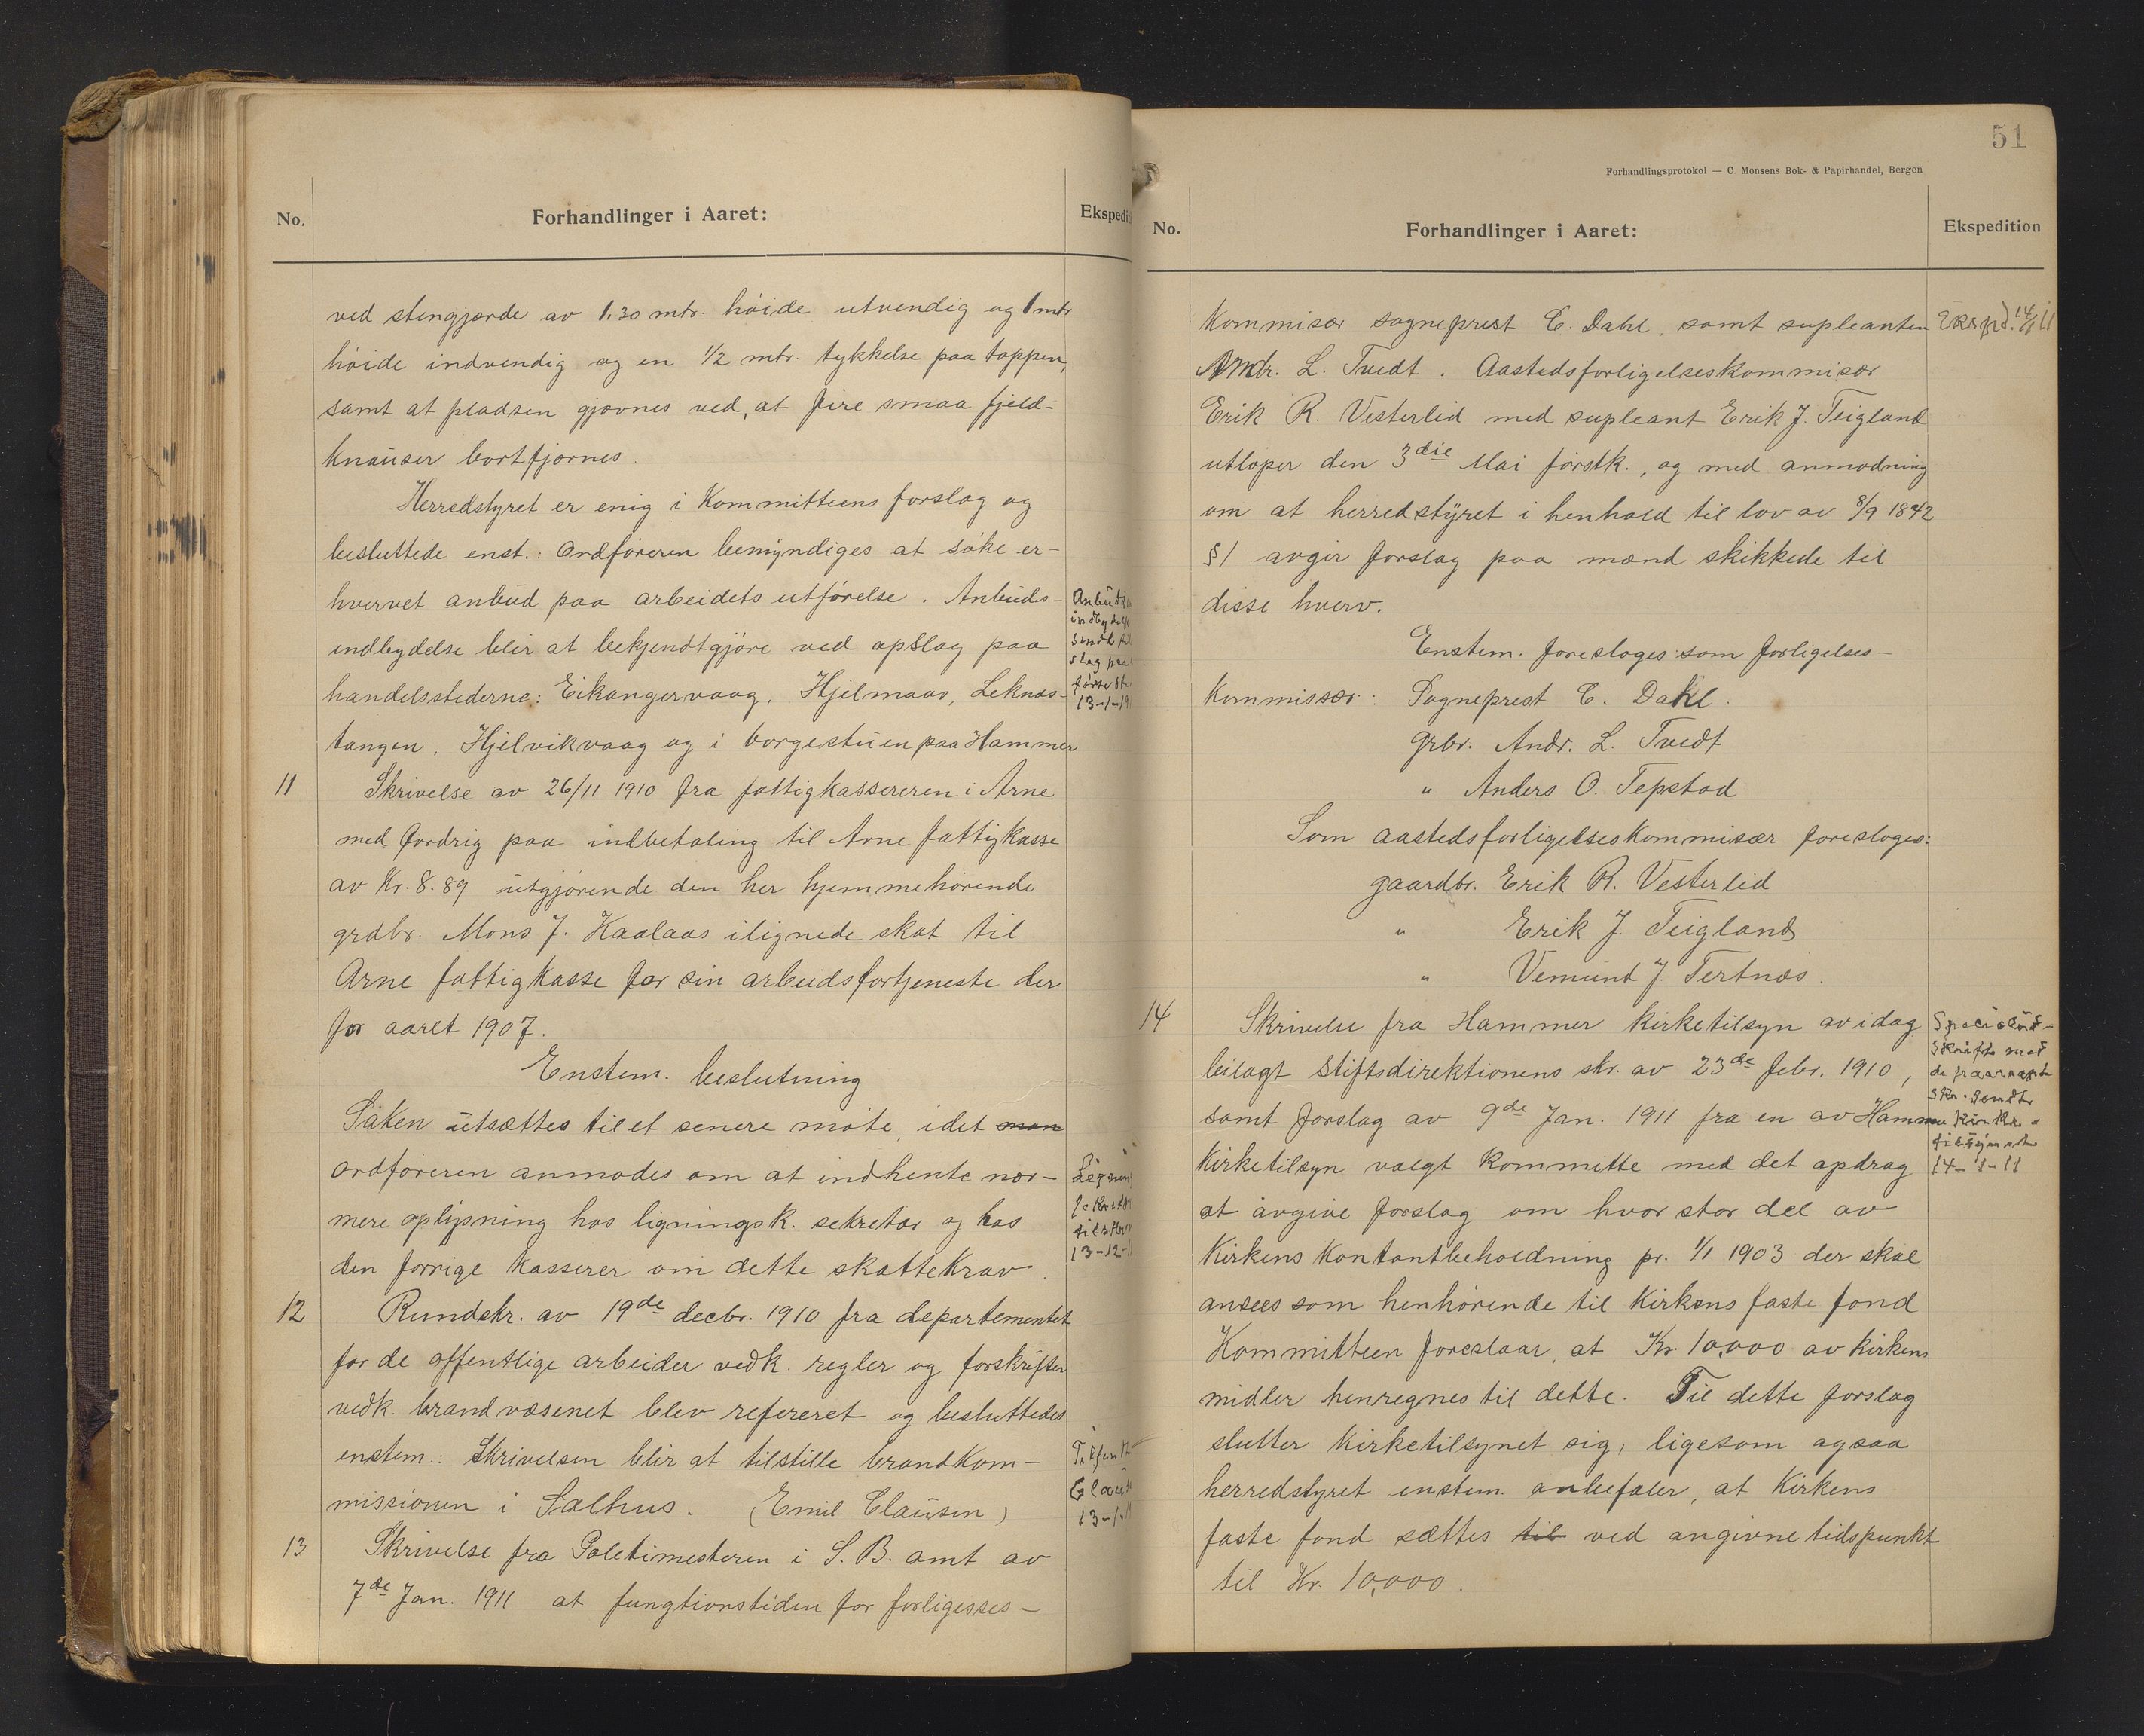 No.
Forhandlinger i Aaret:
ved stengjærde av 1.30 mtr. høide utvendig og 1 mtr
høide indvendig og en 1/2 mtr. tykkelse paa toppen,
samt at pladsen gjævnes ved, at fire smaa fjeld-
knauser bortfjærnes.
Herredstyret er enig i Kommitteens forslag og
besluttede enst.: Ordføreren bemyndiges at søke er-
hvervet anbud paa arbeidets utførelse. Anbuds-
indbydelse blir at bekjendtgjøre ved opslag paa
handelsstederne: Eikangervaag, Hjelmaas, Leknæs-
tangen, Hjelvikvaag og i borgestuen paa Hammer
13-1-19
11
Skrivelse av 26/11 1910 fra fattigkassereren i Arne
med fordrig paa indbetaling til Arne fattigkasse
av Kr. 8.89 utgjørende den her hjemmehørende
grdbr. Mons J. Kaalaas ilignede skat til
Arne fattigkasse for sin arbeidsfortjeneste der
for aaret 1907.
Enstem. beslutning
Saken utsættes til et senere møte, idet man
ordføreren anmodes om at indhente nær-
mere oplysning hos ligningsk. sekretær og hos
den forrige kasserer om dette skattekrav.
13-12-
12
Rundskr. av 19de decbr. 1910 fra departementet
for de offentlige arbeider vedk. regler og forskrifter
vedk. brandvæsenet blev refereret og besluttedes
enstem.: Skrivelsen blir at tilstille brandkom-
missionen i Salhus. (Emil Clausen)
13-1-11
13
Skrivelse fra Politimesteren i S. B. amt av
7de Jan. 1911 at fungtionstiden for forligelses-
51
Forhandlingsprotokol — C. Monsens Bok- & Papirhandel, Bergen
No.
Forhandlinger i Aaret:
Ekspedition
Kommisær sogneprest C. Dahl, samt supleanten
Eksped. 14/1 11
Andr. L. Tvedt. Aastedsforligelseskommisær
Erik R. Vesterlid med supleant Erik J. Teigland
utløper den 3die Mai førstk., og med anmodning
om at herredstyret i henhold til lov av 8/9 1842
§1 avgir forslag paa mænd skikkede til
disse hverv.
Enstem. foresloges som forligelses-
Kommissær: Sogneprest C. Dahl.
grbr. Andr. L. Tvedt
" Anders O. Tepstad
Som aastedsforligelseskommisær foresloges:
gaardbr. Erik R. Vesterlid
" Erik J. Teigland
" Vemund J. Tertnæs.
14
Skrivelse fra Hammer kirketilsyn av idag
bilagt Stiftsdirektionens skr. av 23de febr. 1910,
samt forslag av 9de Jan. 1911 fra en av Hammer
Kirketilsyn valgt Kommitte med det opdrag
14-1-11
at avgive forslag om hvor stor del av
Kirkens Kontantbeholdning pr. 1/1 1903 der skal
ansees som henhørende til Kirkens faste fond
Kommitteen foreslaar, at Kr. 10,000 av kirkens
midler henregnes til dette. Til dette forslag
slutter Kirketilsynet sig, ligesom ogsaa
herredstyret enstem. anbefaler, at Kirkens
faste fond sættes til ved angivne tidspunkt
til Kr. 10,000.